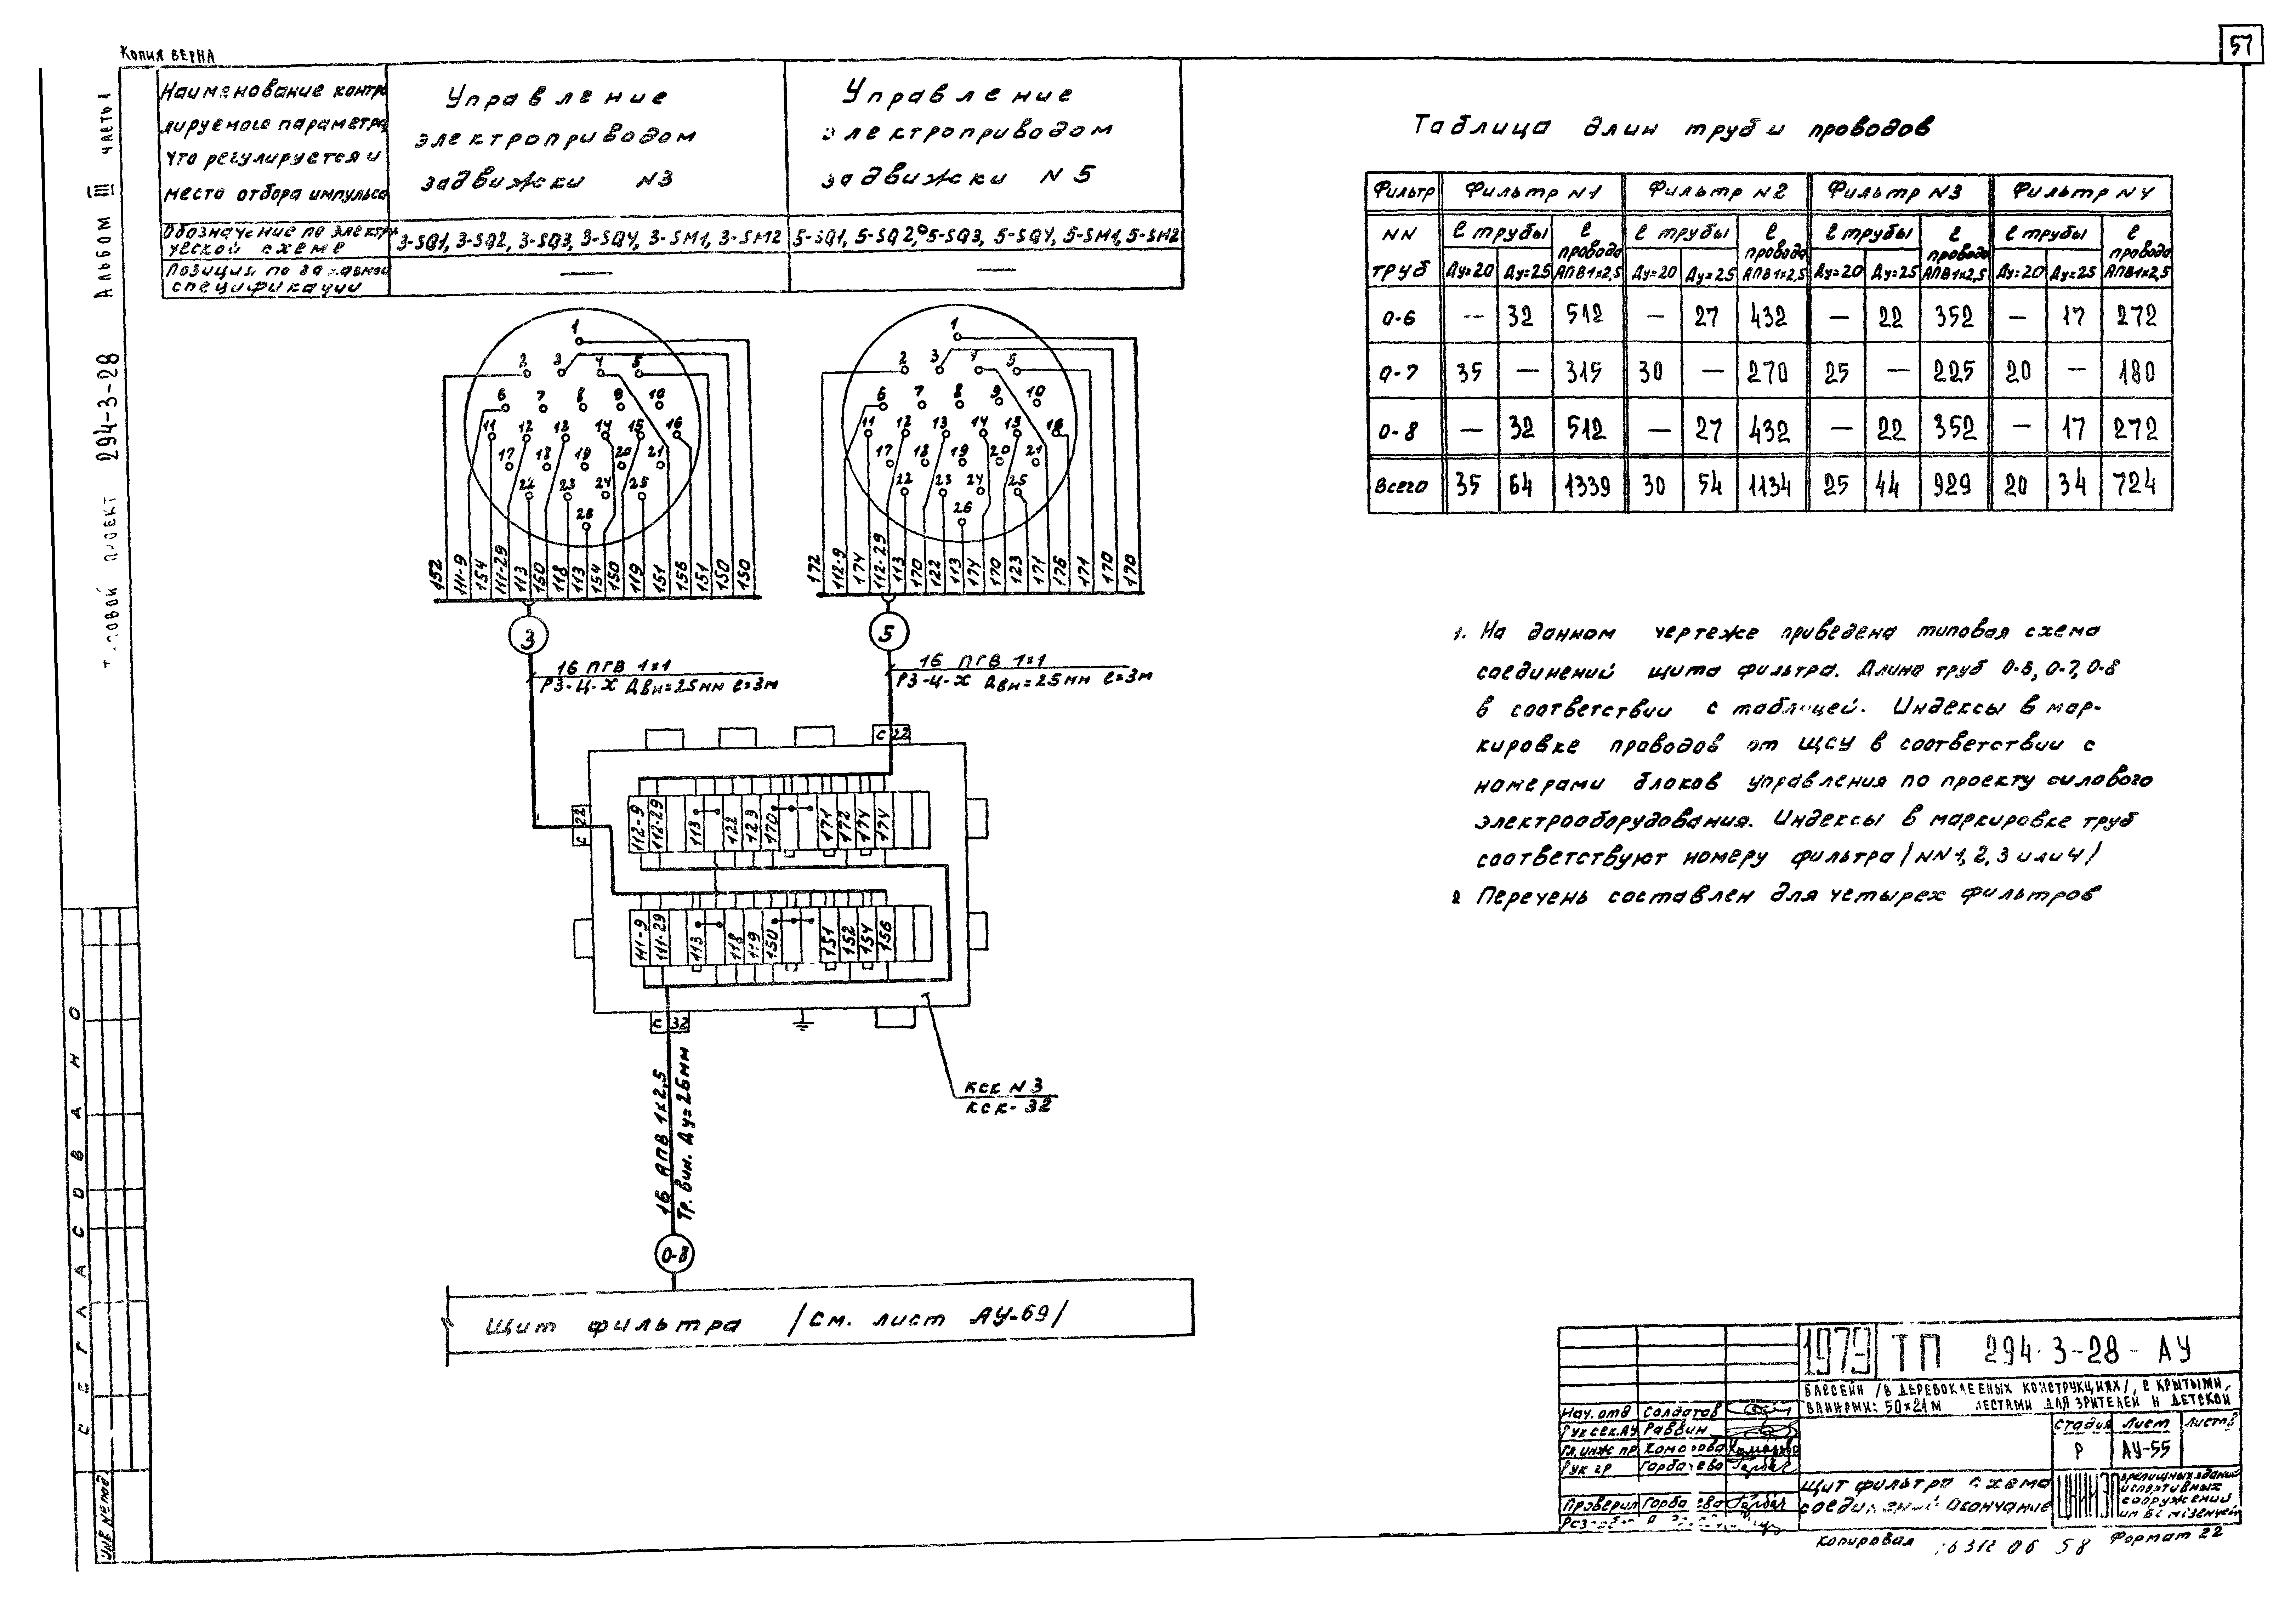 57
Копия ВЕРНА
Типовой проект 294-3-28 Альбом III часть 1
Наименование контро
лируемого параметра,
что регулируется и
место отбора импульса
Управление
электроприводом
задвижски N3
Управление
электроприводом
задвижски N 5
Обозначение по электри
ческой схеме
3-SQ1, 3-SQ2, 3-SQ3, 3-SQ4, 3-SM1, 3-SM2
5-SQ1, 5-SQ2, 5-SQ3, 5-SQ4, 5-SM1, 5-SM2
Позиция по заказной
спецификации
—
—
1
2 3 4 5
6 7 8 9 10
11 12 13 14 15 16
17 18 19 20 21
22 23 24 25
26
152 111-9 154 111-29 113 150 118 113 154 150 119 151 156 151 150 150
3
16 ПГВ 1×1
РЗ-Ц-Х Двн=25мм ℓ=3м
1
2 3 4 5
6 7 8 9 10
11 12 13 14 15 16
17 18 19 20 21
22 23 24 25
26
172 112-9 174 112-29 113 170 122 113 174 170 123 171 176 171 170 170
5
16 ПГВ 1×1
РЗ-Ц-Х Двн=25мм ℓ=3м
С 22
С 22
112-9 112-29 113 122 123 170 171 172 174 174
111-9 111-29 113 118 119 150 151 152 154 156
С 32
КСК N 3
КСК-32
16 АПВ 1×2,5
Тр. вин. Ду=25мм
0-8
Щит фильтра /См. лист АУ-69/
Таблица длин труб и проводов
Фильтр Фильтр N1 Фильтр N2 Фильтр N3 Фильтр N4
NN ℓ трубы ℓ ℓ трубы ℓ ℓ трубы ℓ ℓ трубы ℓ
провода провода провода провода
труб Ду=20 Ду=25 АПВ1×2,5 Ду=20 Ду=25 АПВ1×2,5 Ду=20 Ду=25 АПВ1×2,5 Ду=20 Ду=25 АПВ1×2,5
0-6 -- 32 512 — 27 432 — 22 352 — 17 272
0-7 35 — 315 30 — 270 25 — 225 20 — 180
0-8 — 32 512 — 27 432 — 22 352 — 17 272
Всего 35 64 1339 30 54 1134 25 44 929 20 34 724
1. На данном чертеже приведена типовая схема
соединений щита фильтра. Длина труб 0-6, 0-7, 0-8
в соответствии с таблицей. Индексы в мар-
кировке проводов от ЩСУ в соответствии с
номерами блоков управления по проекту силового
электрооборудования. Индексы в маркировке труб
соответствуют номеру фильтра /NN 1, 2, 3 или 4/
2 Перечень составлен для четырех фильтров
СОГЛАСОВАНО
Инв № подл
1979 ТП 294-3-28-АУ
Бассейн /в деревоклееных конструкциях/, с крытыми,
ваннами: 50×21м местами для зрителей и детской
Нач. отд Солдатов
Рук сек. АУ Раввин
Гл. инж пр Комарова
Рук гр Горбачева
Проверил Горбачева
Стадия Лист Листов
Р АУ-55
Щит фильтра схема
соединений окончание
зрелищных зданий
и спортивных
сооружений
Копировал 16312 06 58 Формат 22